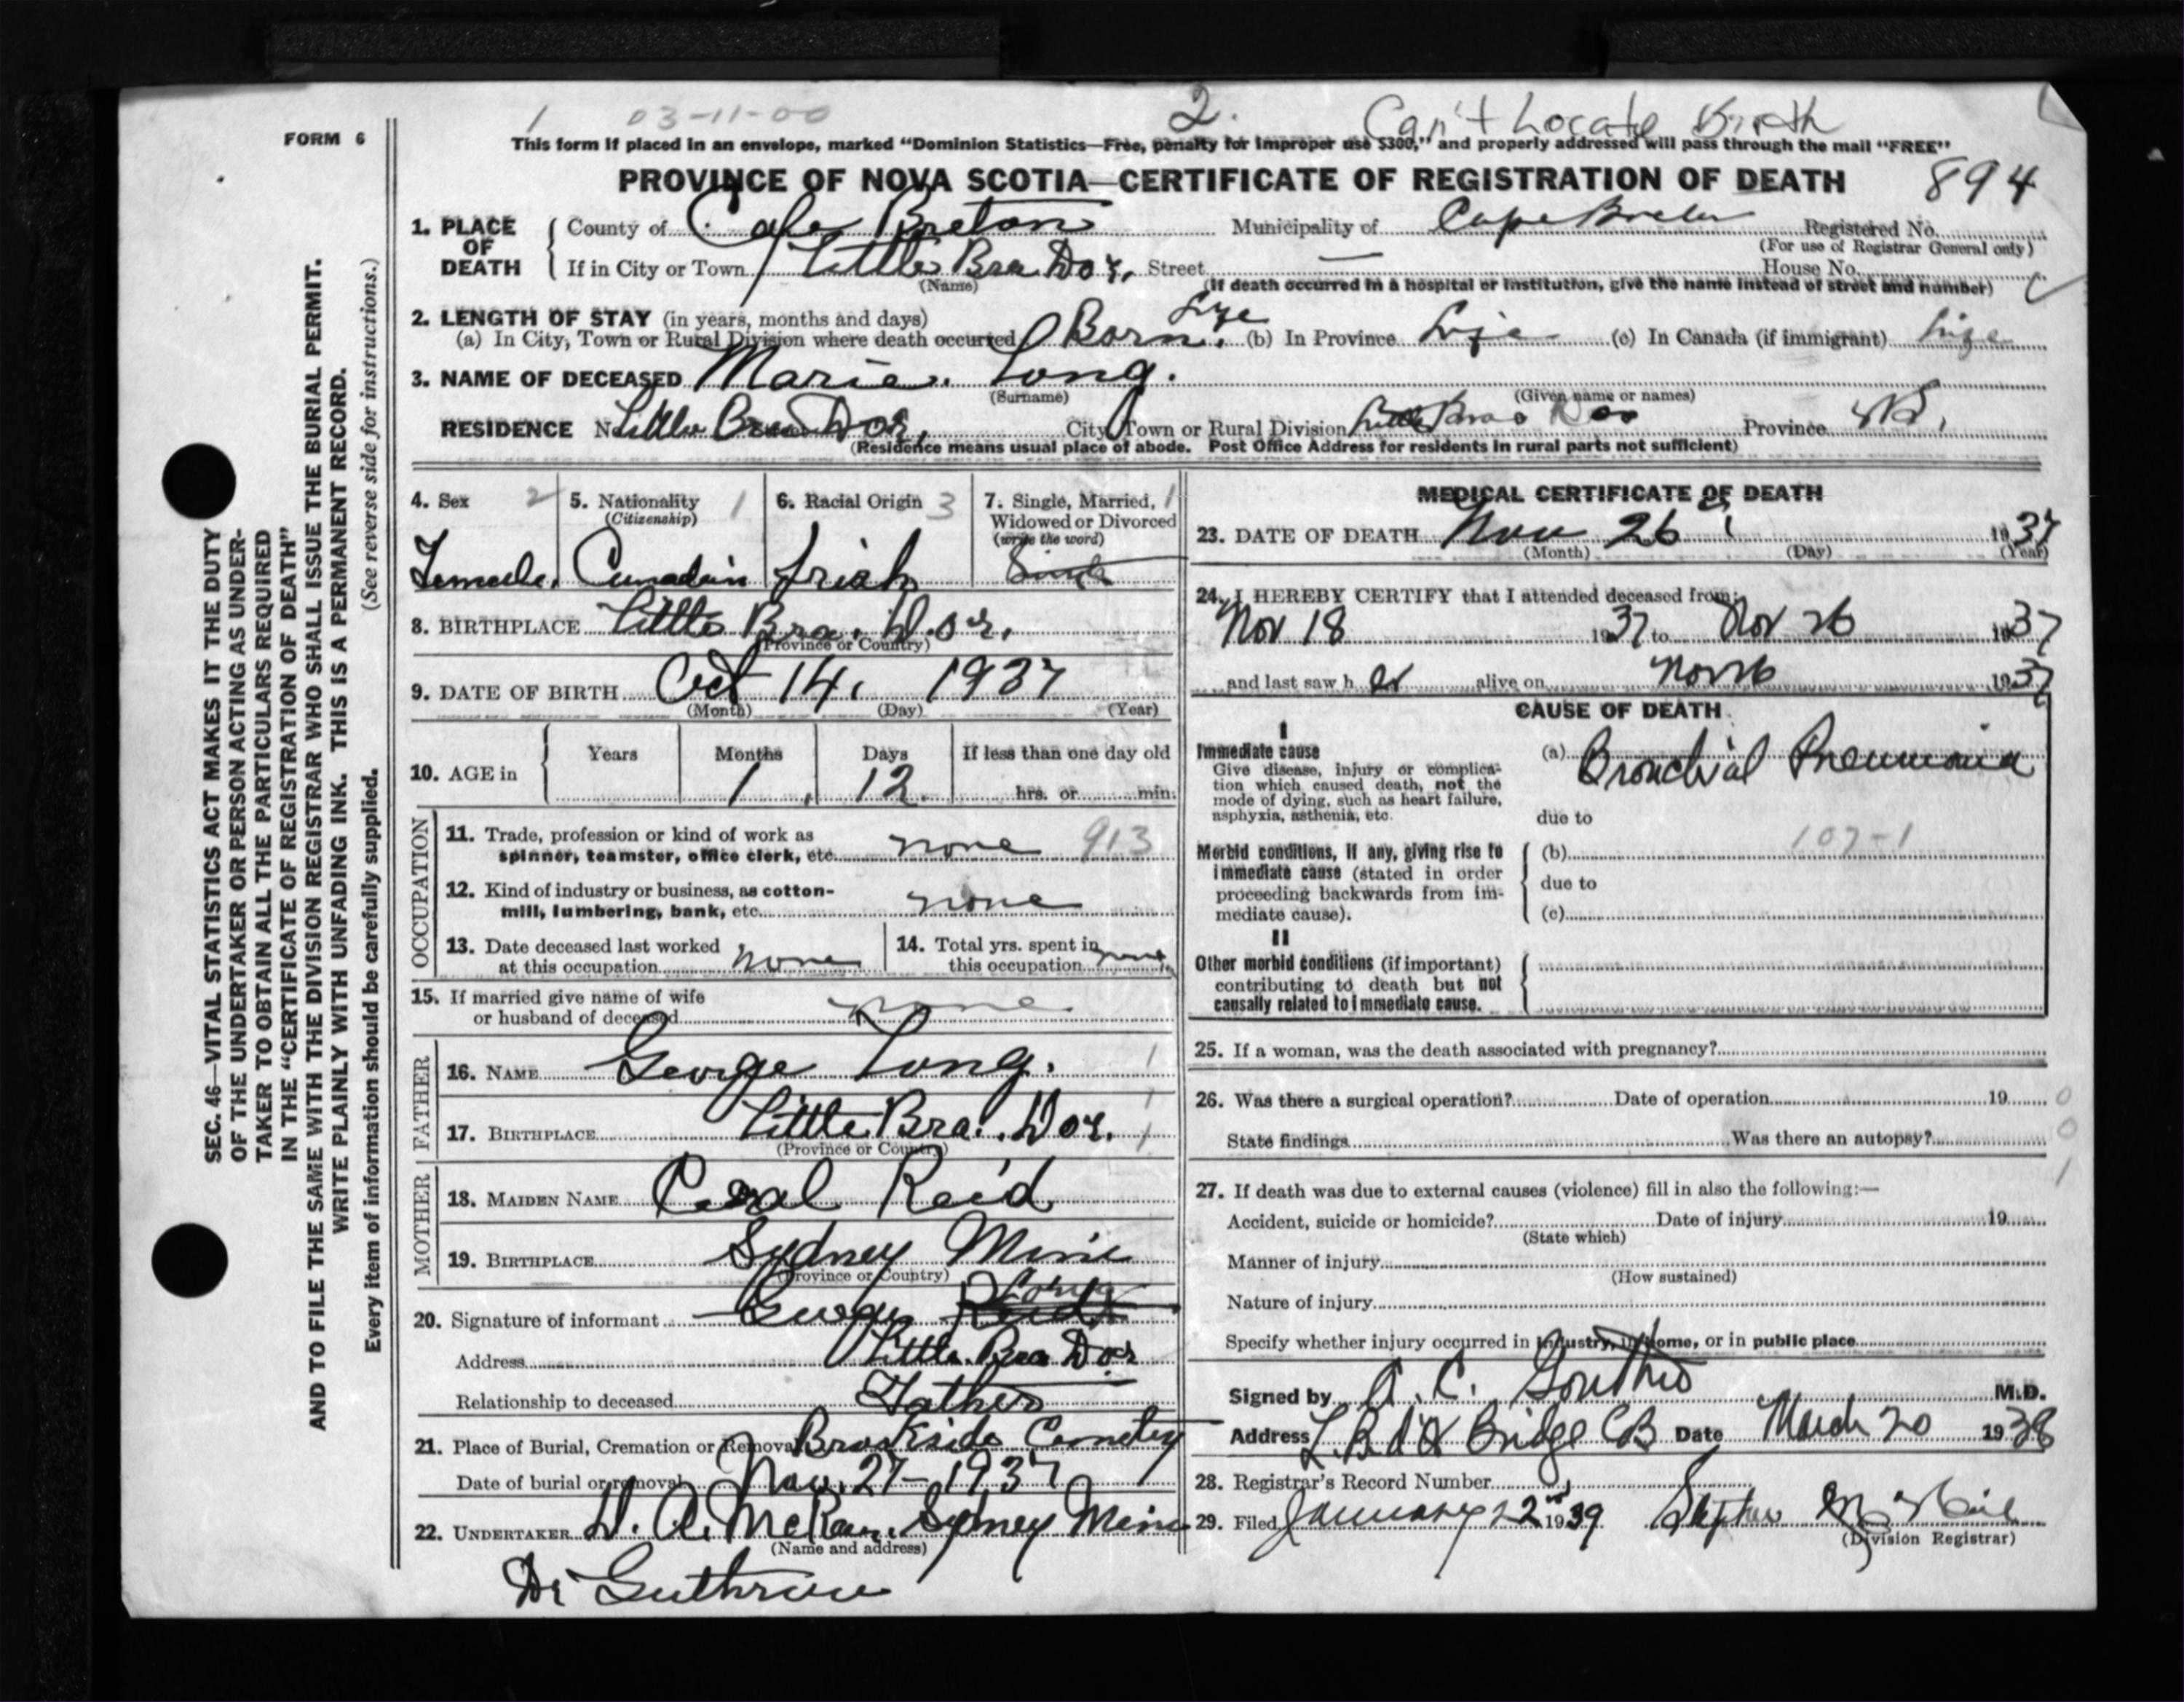 1 03-11-00 2. Can't Locate Birth
FORM 6
This form if placed in an envelope, marked "Dominion Statistics—Free, penalty for improper use $300," and properly addressed will pass through the mail "FREE"
PROVINCE OF NOVA SCOTIA—CERTIFICATE OF REGISTRATION OF DEATH 894
1. PLACE OF DEATH
County of Cape Breton Municipality of Cape Breton Registered No.
(For use of Registrar General only)
If in City or Town Little Bra Dor, Street — House No.
(Name) (If death occurred in a hospital or institution, give the name instead of street and number)
2. LENGTH OF STAY (in years, months and days)
Life
(a) In City, Town or Rural Division where death occurred Born. (b) In Province Life (c) In Canada (if immigrant) Life
3. NAME OF DECEASED Marie. Long.
(Surname) (Given name or names)
RESIDENCE No Little Bra Dor, City, Town or Rural Division Little Bras Dor Province N.S.
(Residence means usual place of abode. Post Office Address for residents in rural parts not sufficient)
4. Sex 2 5. Nationality 1 6. Racial Origin 3 7. Single, Married, 1
(Citizenship) Widowed or Divorced
(write the word)
Female. Canadain Irish Single
8. BIRTHPLACE Little Bra. Dor.
(Province or Country)
9. DATE OF BIRTH Oct 14, 1937
(Month) (Day) (Year)
10. AGE in Years Months Days If less than one day old
1 12. hrs. or min.
OCCUPATION
11. Trade, profession or kind of work as
spinner, teamster, office clerk, etc. none 913
12. Kind of industry or business, as cotton-
mill, lumbering, bank, etc. none
13. Date deceased last worked
at this occupation none
14. Total yrs. spent in
this occupation none
15. If married give name of wife
or husband of deceased none
FATHER
16. NAME George Long. 1
17. BIRTHPLACE Little Bra. Dor. 1 1
(Province or Country)
MOTHER
18. MAIDEN NAME Ceral Reid
19. BIRTHPLACE Sydney Mine
(Province or Country)
20. Signature of informant George Reid Long
Address Little Bra Dor
Relationship to deceased Father
21. Place of Burial, Cremation or Removal Brookside Cemetery
Date of burial or removal Nov. 27 - 1937
22. UNDERTAKER D. A. McRae, Sydney Mine
(Name and address)
Dr Guthrie
MEDICAL CERTIFICATE OF DEATH
23. DATE OF DEATH Nov 26 1937
(Month) (Day) (Year)
24. I HEREBY CERTIFY that I attended deceased from:
Nov 18 1937 to Nov 26 1937
and last saw h er alive on Nov 26 1937
CAUSE OF DEATH
I
Immediate cause
Give disease, injury or complica-
tion which caused death, not the
mode of dying, such as heart failure,
asphyxia, asthenia, etc.
(a) Bronchial Pneumonia
due to
107-1
Morbid conditions, if any, giving rise to
immediate cause (stated in order
proceeding backwards from im-
mediate cause).
(b)
due to
(c)
II
Other morbid conditions (if important)
contributing to death but not
causally related to immediate cause.
25. If a woman, was the death associated with pregnancy?
26. Was there a surgical operation? Date of operation 19 0
State findings Was there an autopsy? 0
1
27. If death was due to external causes (violence) fill in also the following:—
Accident, suicide or homicide? Date of injury 19
(State which)
Manner of injury
(How sustained)
Nature of injury
Specify whether injury occurred in industry, in home, or in public place
Signed by A. C. Gouthro M.D.
Address L. B. d'Or Bridge CB Date March 20 1938
28. Registrar's Record Number
29. Filed January 22nd 1939 Stephen McNeil
(Division Registrar)
SEC. 46—VITAL STATISTICS ACT MAKES IT THE DUTY
OF THE UNDERTAKER OR PERSON ACTING AS UNDER-
TAKER TO OBTAIN ALL THE PARTICULARS REQUIRED
IN THE "CERTIFICATE OF REGISTRATION OF DEATH"
AND TO FILE THE SAME WITH THE DIVISION REGISTRAR WHO SHALL ISSUE THE BURIAL PERMIT.
WRITE PLAINLY WITH UNFADING INK. THIS IS A PERMANENT RECORD.
Every item of information should be carefully supplied. (See reverse side for instructions.)